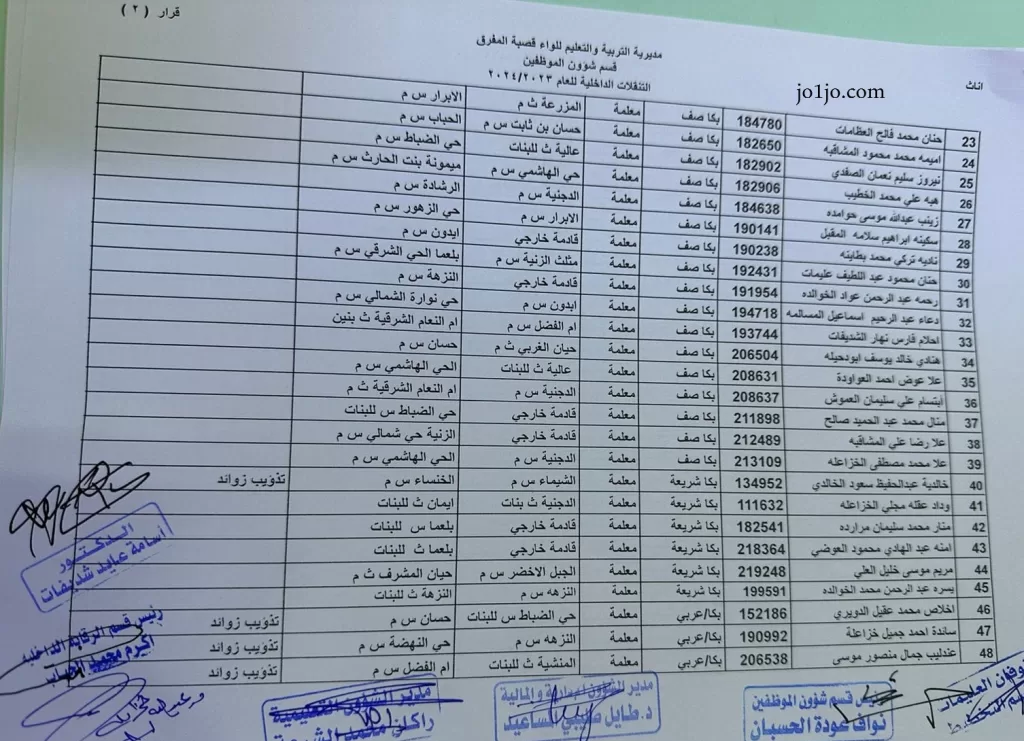 قرار ( ٢ )
مديرية التربية والتعليم للواء قصبة المفرق
قسم شؤون الموظفين
التنقلات الداخلية للعام ٢٠٢٤/٢٠٢٣
اناث
jo1jo.com
23 حنان محمد فالح العظامات 184780 بكا صف معلمة المزرعة ث م الابرار س م
24 اميمه محمد محمود المشاقبه 182650 بكا صف معلمة حسان بن ثابت س م الحباب س م
25 نيروز سليم نعمان الصفدي 182902 بكا صف معلمة عالية ث للبنات حي الضباط س م
26 هبه علي محمد الخطيب 182906 بكا صف معلمة حي الهاشمي س م ميمونة بنت الحارث س م
27 زينب عبدالله موسى حوامده 184638 بكا صف معلمة الدجنية س م الرشادة س م
28 سكينه ابراهيم سلامه المقبل 190141 بكا صف معلمة الابرار س م حي الزهور س م
29 ناديه تركي محمد بطاينه 190238 بكا صف معلمة قادمة خارجي ايدون س م
30 حنان محمود عبد اللطيف عليمات 192431 بكا صف معلمة مثلث الزنية س م بلعما الحي الشرقي س م
31 رحمه عبد الرحمن عواد الخوالده 191954 بكا صف معلمة قادمة خارجي النزهة س م
32 دعاء عبد الرحيم اسماعيل المسالمه 194718 بكا صف معلمة ايدون س م حي نوارة الشمالي س م
33 احلام فارس نهار الشديفات 193744 بكا صف معلمة ام الفضل س م ام النعام الشرقية ث بنين
34 هنادي خالد يوسف ابودحيله 206504 بكا صف معلمة حيان الغربي ث م حسان س م
35 علا عوض احمد العواودة 208631 بكا صف معلمة عالية ث للبنات الحي الهاشمي س م
36 ابتسام علي سليمان العموش 208637 بكا صف معلمة الدجنية س م ام النعام الشرقية ث م
37 منال محمد عبد الحميد صالح 211898 بكا صف معلمة قادمة خارجي حي الضباط س للبنات
38 علا رضا علي المشاقبه 212489 بكا صف معلمة قادمة خارجي الزنية حي شمالي س م
39 علا محمد مصطفى الخزاعله 213109 بكا صف معلمة الدجنية س م الحي الهاشمي س م
40 خالدية عبدالحفيظ سعود الخالدي 134952 بكا شريعة معلمة الشيماء س م الخنساء س م تذؤيب زوائد
41 وداد عقله مجلي الخزاعله 111632 بكا شريعة معلمة الدجنية ث بنات ايمان ث للبنات
42 منار محمد سليمان مرارده 182541 بكا شريعة معلمة قادمة خارجي بلعما س للبنات
43 امنه عبد الهادي محمود العوضي 218364 بكا شريعة معلمة قادمة خارجي بلعما ث للبنات
44 مريم موسى خليل العلي 219248 بكا شريعة معلمة الجبل الاخضر س م حيان المشرف ث م
45 يسره عبد الرحمن محمد الخوالده 199591 بكا شريعة معلمة النزهه س م النزهة ث للبنات
46 اخلاص محمد عقيل الدويري 152186 بكا/عربي معلمة حي الضباط س للبنات حسان س م تذؤيب زوائد
47 ساندة احمد جميل خزاعلة 190992 بكا/عربي معلمة النزهه س م حي النهضة س م تذؤيب زوائد
48 عندليب جمال منصور موسى 206538 بكا/عربي معلمة المنشية ث للبنات ام الفضل س م تذؤيب زوائد
الدكتور
أسامة عايد شديفات
رئيس قسم الرقابة الداخلية
أكرم محمد
مدير الشؤون التعليمية
مدير الشؤون الادارية والمالية
د. طايل
رئيس قسم شؤون الموظفين
نواف عودة الحسبان